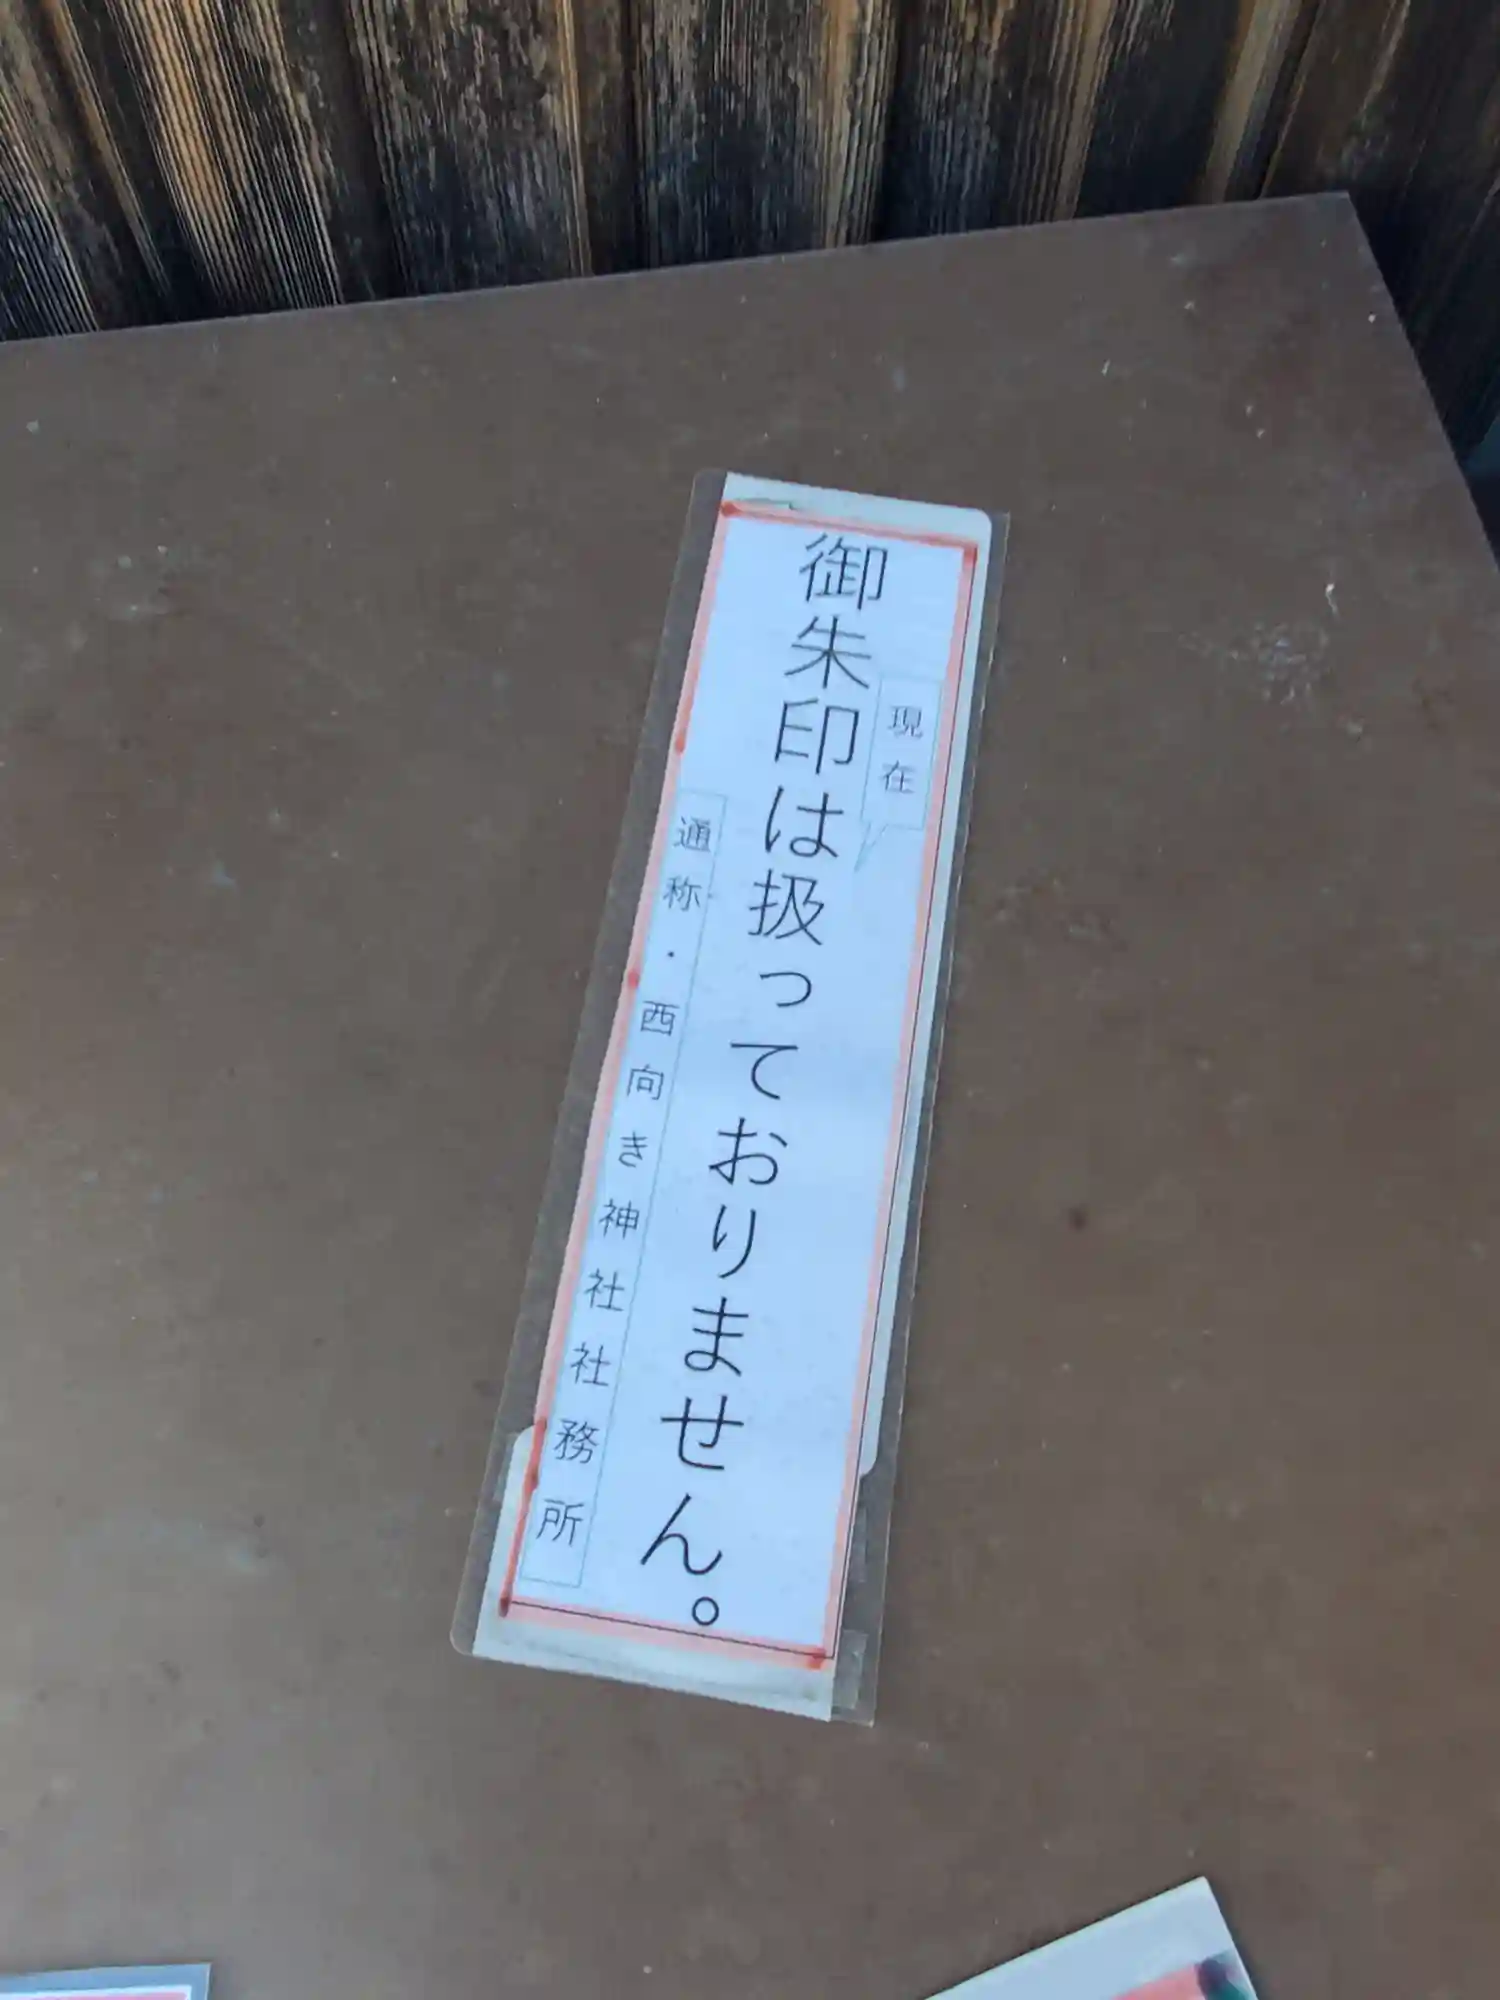 御朱印は扱っておりません。
現在
通称・西向き神社社務所